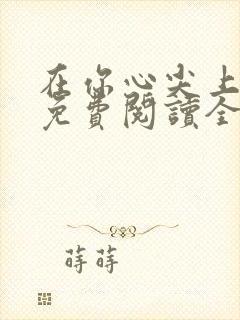 在你心尖上
免費閱讀全
蒔蒔